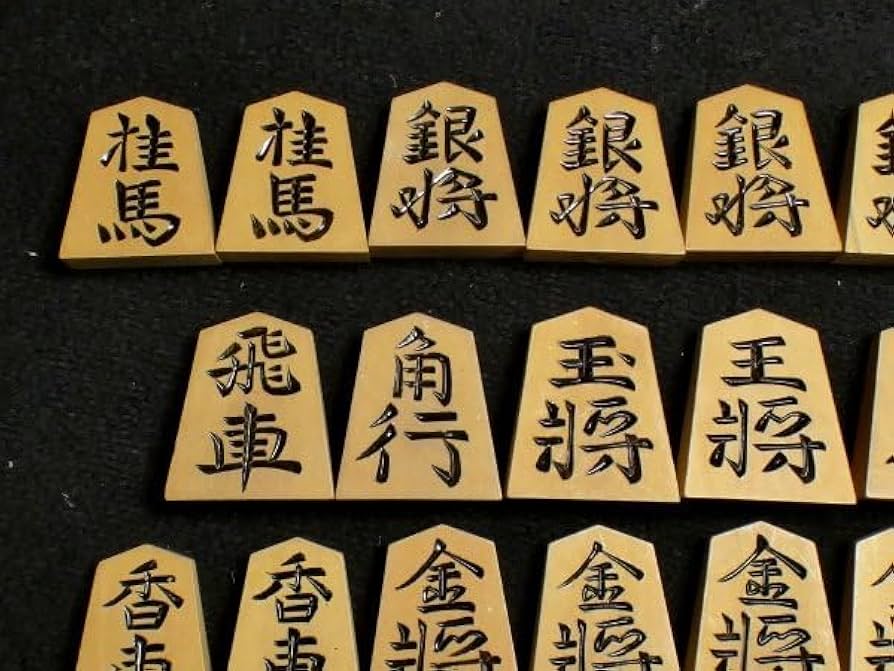 桂馬 桂馬 銀将 銀将 銀将 銀将
飛車 角行 玉将 王将
香車 香車 金将 金将 金将